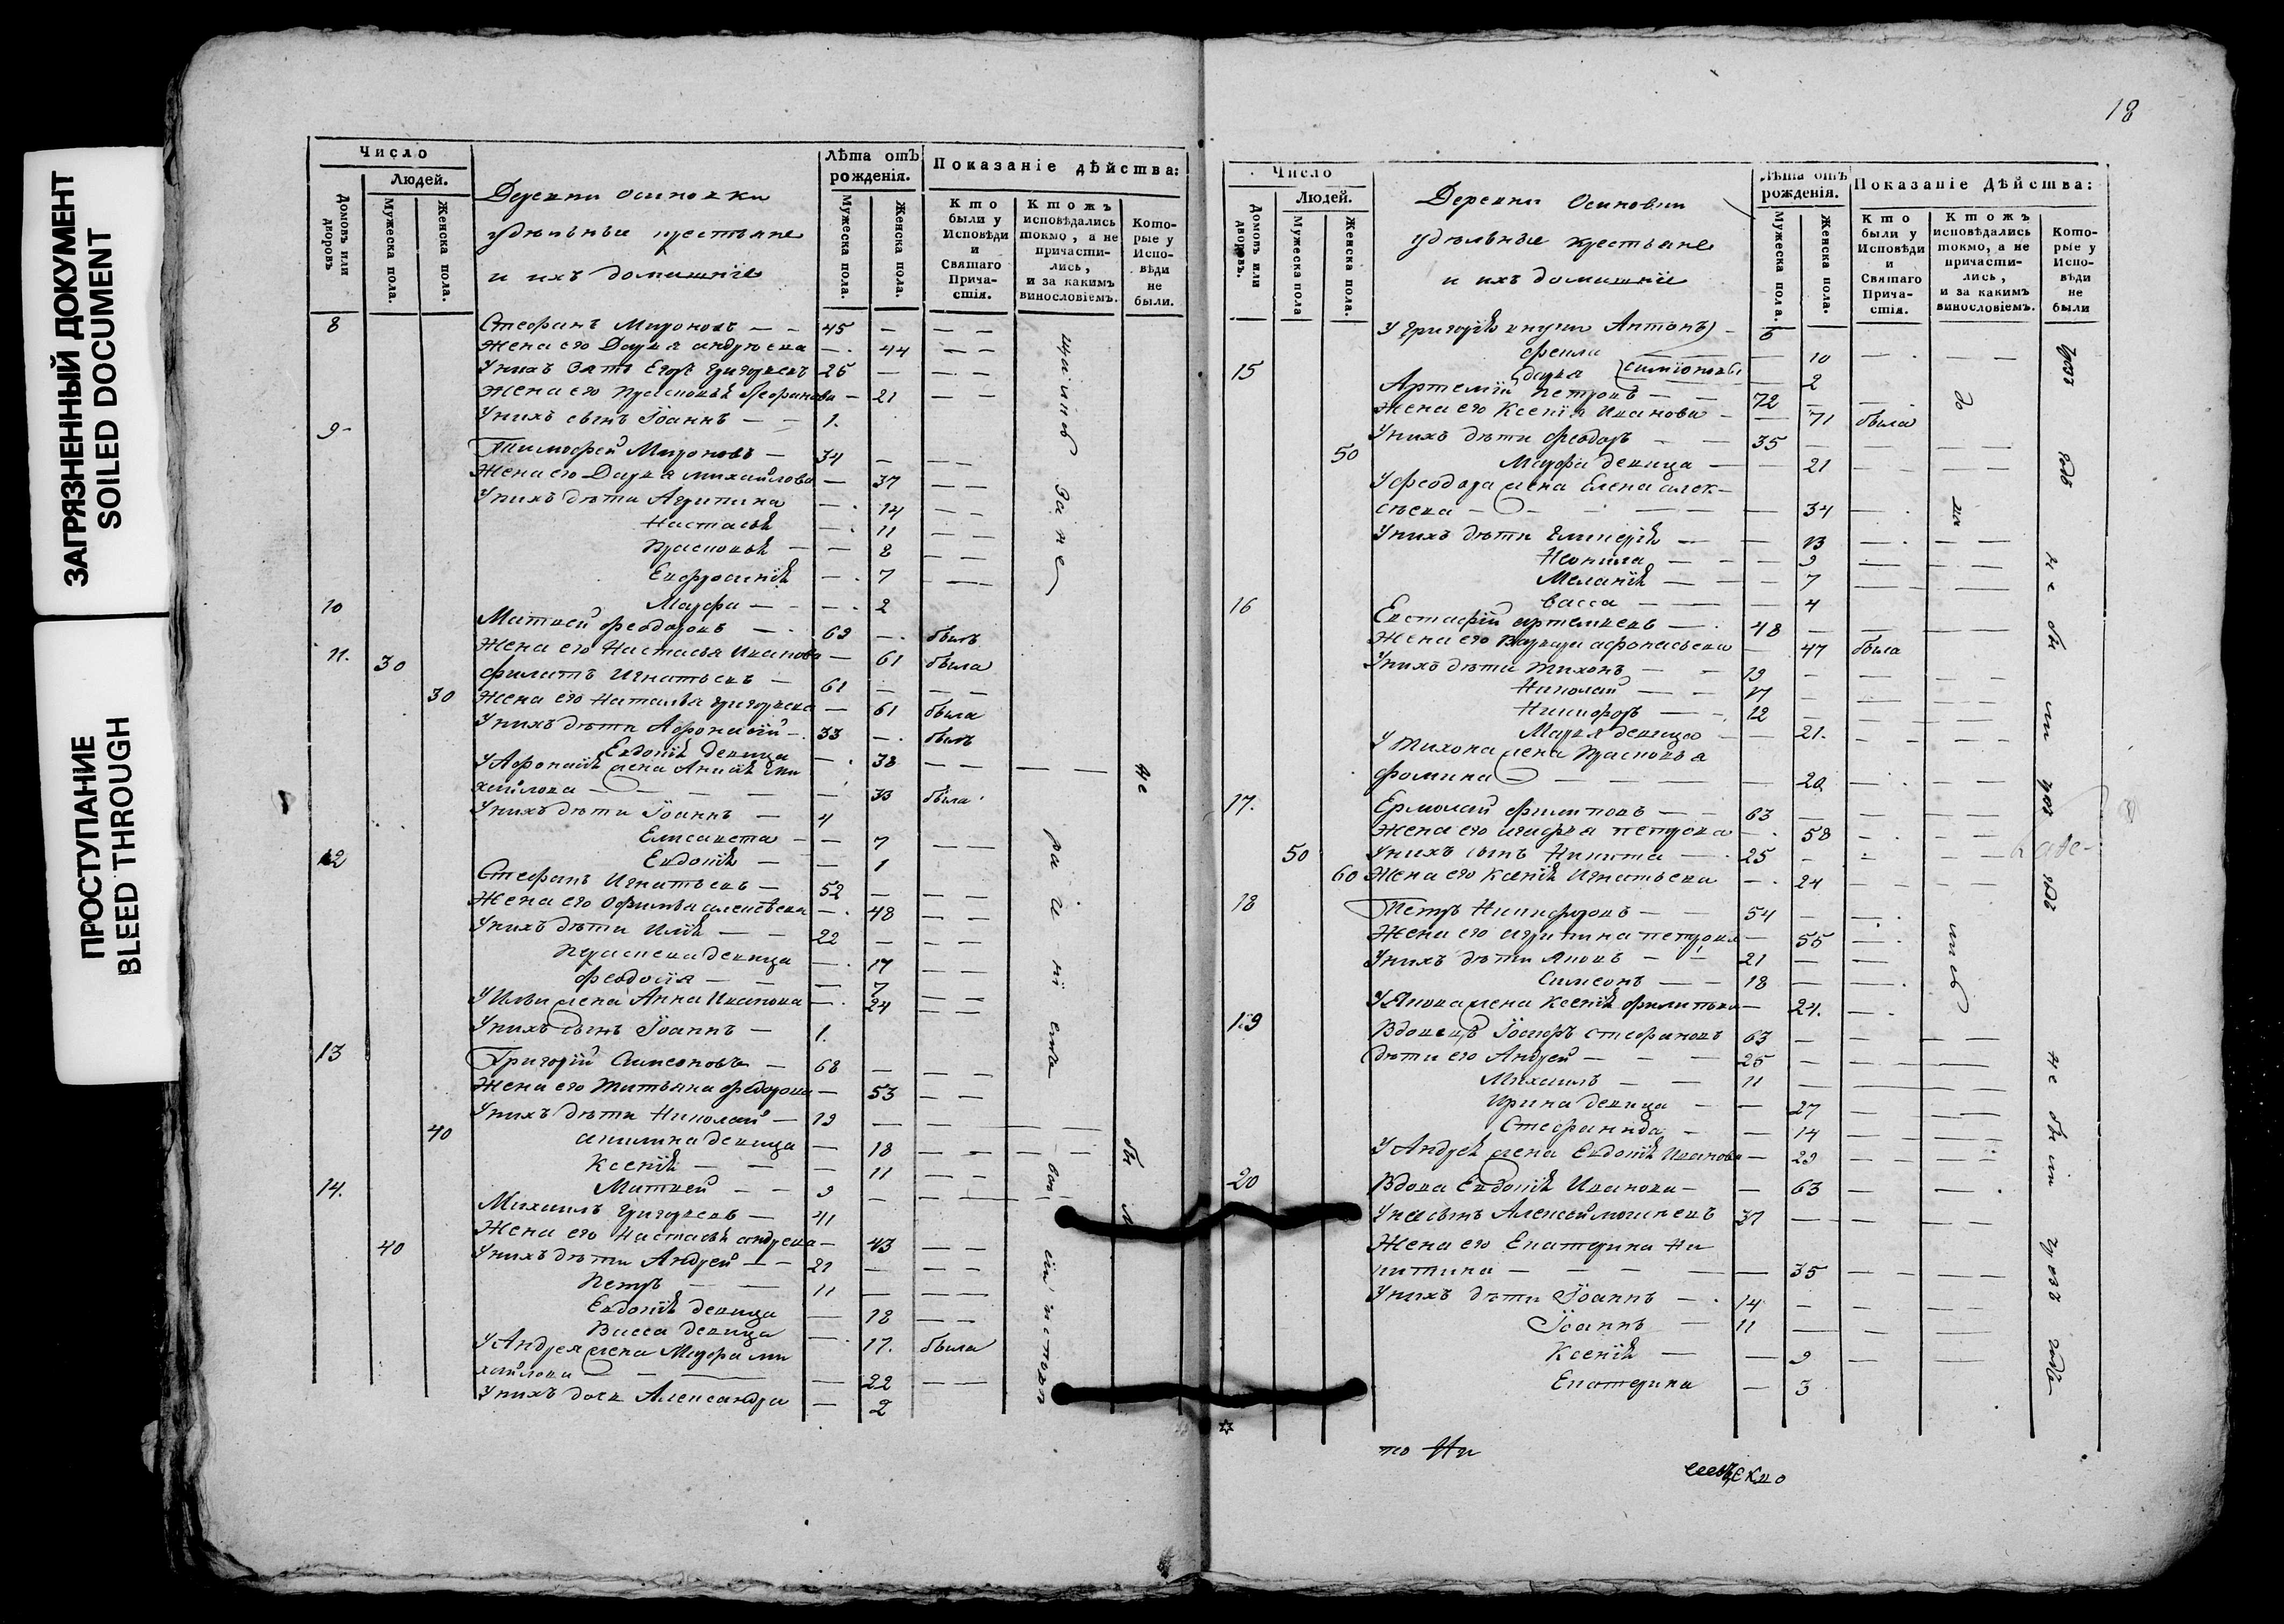 ЗАГРЯЗНЕННЫЙ ДОКУМЕНТ
SOILED DOCUMENT
ПРОСТУПАНИЕ
BLEED THROUGH
Число
Людей.
Домовъ или дворовъ
Мужеска пола.
Женска пола.
Деревни Осиновки
удѣльные крестьяне
и ихъ домашніе
Лѣта отъ рожденія.
Мужеска пола.
Женска пола.
Показаніе дѣйства:
Кто были у Исповѣди и Святаго Прича-стія.
Ктожъ исповѣдались токмо, а не причасти-лись, и за какимъ винословіемъ.
Кото-рые у Испо-вѣди не были.
8 Стефанъ Мироновъ — 45 —
Жена его Дарья Андреева — 44
У нихъ зять Егоръ Григорьевъ 25 —
Жена его Прасковья Стефанова — 21
У нихъ сынъ Іоаннъ — 1.
9 Тимофей Мироновъ — 34 —
Жена его Дарья Михайлова — 37
У нихъ дѣти Агрипина — 14
Настасья — 11
Прасковья — 8
Евфросинія — 7
Марфа — 2
10 Матвей Феодоровъ — 69 — былъ
Жена его Настасья Иванова — 61 была
11. 30 Филипъ Игнатьевъ — 61 —
30 Жена его Наталья Григорьева — 61 была
У нихъ дѣти Афонасій — 33 — былъ
Евдокія девица — 38
У Афонасія жена Анисія Ми
хайлова — 33 была
У нихъ дѣти Іоаннъ — 4
Елисавета — 7
Евдокія — 1
12 Стефанъ Игнатьевъ — 52 —
Жена его Офимья Алексѣева — 48
У нихъ дѣти Илія — 22 —
Параскева девица — 17
Феодосія — 7
У Ильи жена Анна Иванова — 24
У нихъ сынъ Іоаннъ — 1.
13 Григорій Симеоновъ — 68 —
Жена его Татьяна Федорова — 53
У нихъ дѣти Николай — 19 —
40 Акилина девица — 18
Ксенія — 11
Матвей — 9 —
14. Михаилъ Григорьевъ — 41
Жена его Настасья Андреева — 43
40 У нихъ дѣти Андрей — 21 —
Петръ — 11 —
Евдокія девица — 18
Васса девица — 17. была
У Андрея жена Марфа Ми
хайлова — 22
У нихъ дочь Александра — 2
18
Число
Людей.
Домовъ или дворовъ.
Мужеска пола
Женска пола.
Деревни Осиновки
удѣльные крестьяне
и ихъ домашніе
Лѣта отъ рожденія.
Мужеска пола.
Женска пола.
Показаніе Дѣйства:
Кто были у Исповѣди и Святаго Прича-стія.
Ктожъ исповѣдались токмо, а не причасти-лись, и за какимъ винословіемъ.
Кото-рые у Испо-вѣди не были
У Григорія внуки Антонъ — 6
Фекла — 10
Дарья Симіоновы — 2
15 Артемій Петровъ — 72 —
Жена его Ксенія Иванова — 71 была
У нихъ дѣти Феодоръ — 35 —
50 Марфа девица — 21
У Феодора жена Елена Алек-
сѣева — 34
У нихъ дѣти Гликерія — 13
Неонила — 9
Меланія — 7
Васса — 4
16 Евстафій Артемьевъ — 48 —
Жена его Варвара Афонасьева — 47 была
У нихъ дѣти Тихонъ — 19 —
Николай — 17 —
Никифоръ — 12 —
Марья девица — 21.
У Тихона жена Прасковья
Фомина — 20
17. Ермолай Филиповъ — 63 —
Жена его Марфа Петрова — 58
50 У нихъ сынъ Никита — 25 —
60 Жена его Ксенія Игнатьева — 24
18 Петръ Никифоровъ — 54 —
Жена его Агрипина Петрова — 55
У нихъ дѣти Яковъ — 21 —
Симеонъ — 18 —
У Якова жена Ксенія Филипова — 24.
19 Вдовецъ Іосифъ Стефановъ 63 —
дѣти его Андрей — 25 —
Михаилъ — 11 —
Ирина девица — 27
Стефанида — 14
У Андрея жена Евдокія Иванова — 29
20 Вдова Евдокія Иванова — 63
У нея сынъ Алексей 37 —
Жена его Екатерина Ни
китина — 35
У нихъ дѣти Іоаннъ — 14 —
Іоаннъ — 11 —
Ксенія — 9
Екатерина — 3